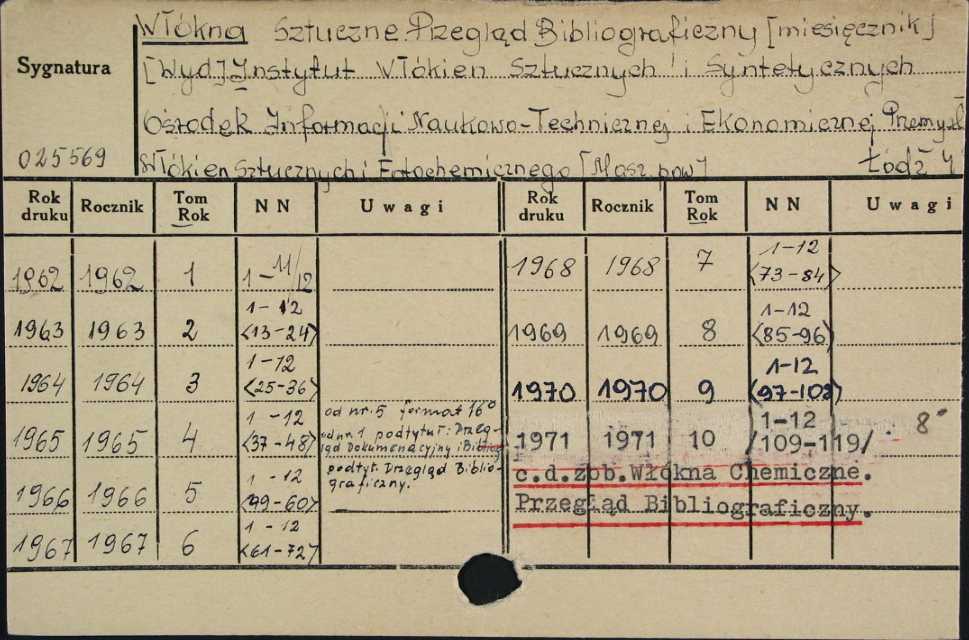 Włókna Sztuczne. Przegląd Bibliograficzny [miesięcznik]
Sygnatura
[Wyd] Instytut Włókien Sztucznych i Syntetycznych
Ośrodek Informacji Naukowo-Technicznej i Ekonomicznej Przemysł
025569
Włókien Sztucznych i Fotochemicznego [Masz. pow] Łódź 4
Rok druku Rocznik Tom Rok NN Uwagi Rok druku Rocznik Tom Rok NN Uwagi
1962 1962 1 1-11/12
1963 1963 2 1-12 <13-24>
1964 1964 3 1-12 <25-36>
1965 1965 4 1-12 <37-48> od nr. 5 format 16°
od nr. 1 podtytuł: Przeg-
ląd Dokumentacyjny i Bibliog
1966 1966 5 1-12 <49-60> podtyt. Przegląd Biblio-
graficzny.
1967 1967 6 1-12 <61-72>
1968 1968 7 1-12 <73-84>
1969 1969 8 1-12 <85-96>
1970 1970 9 1-12 <97-108>
1971 1971 10 1-12 /109-119/. 8°
c.d.zob.Włókna Chemiczne.
Przegląd Bibliograficzny.